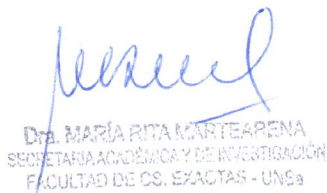 Dra. MARÍA RITA MARTEARENA
SECRETARIA ACADÉMICA Y DE INVESTIGACIÓN
FACULTAD DE CS. EXACTAS - UNSa